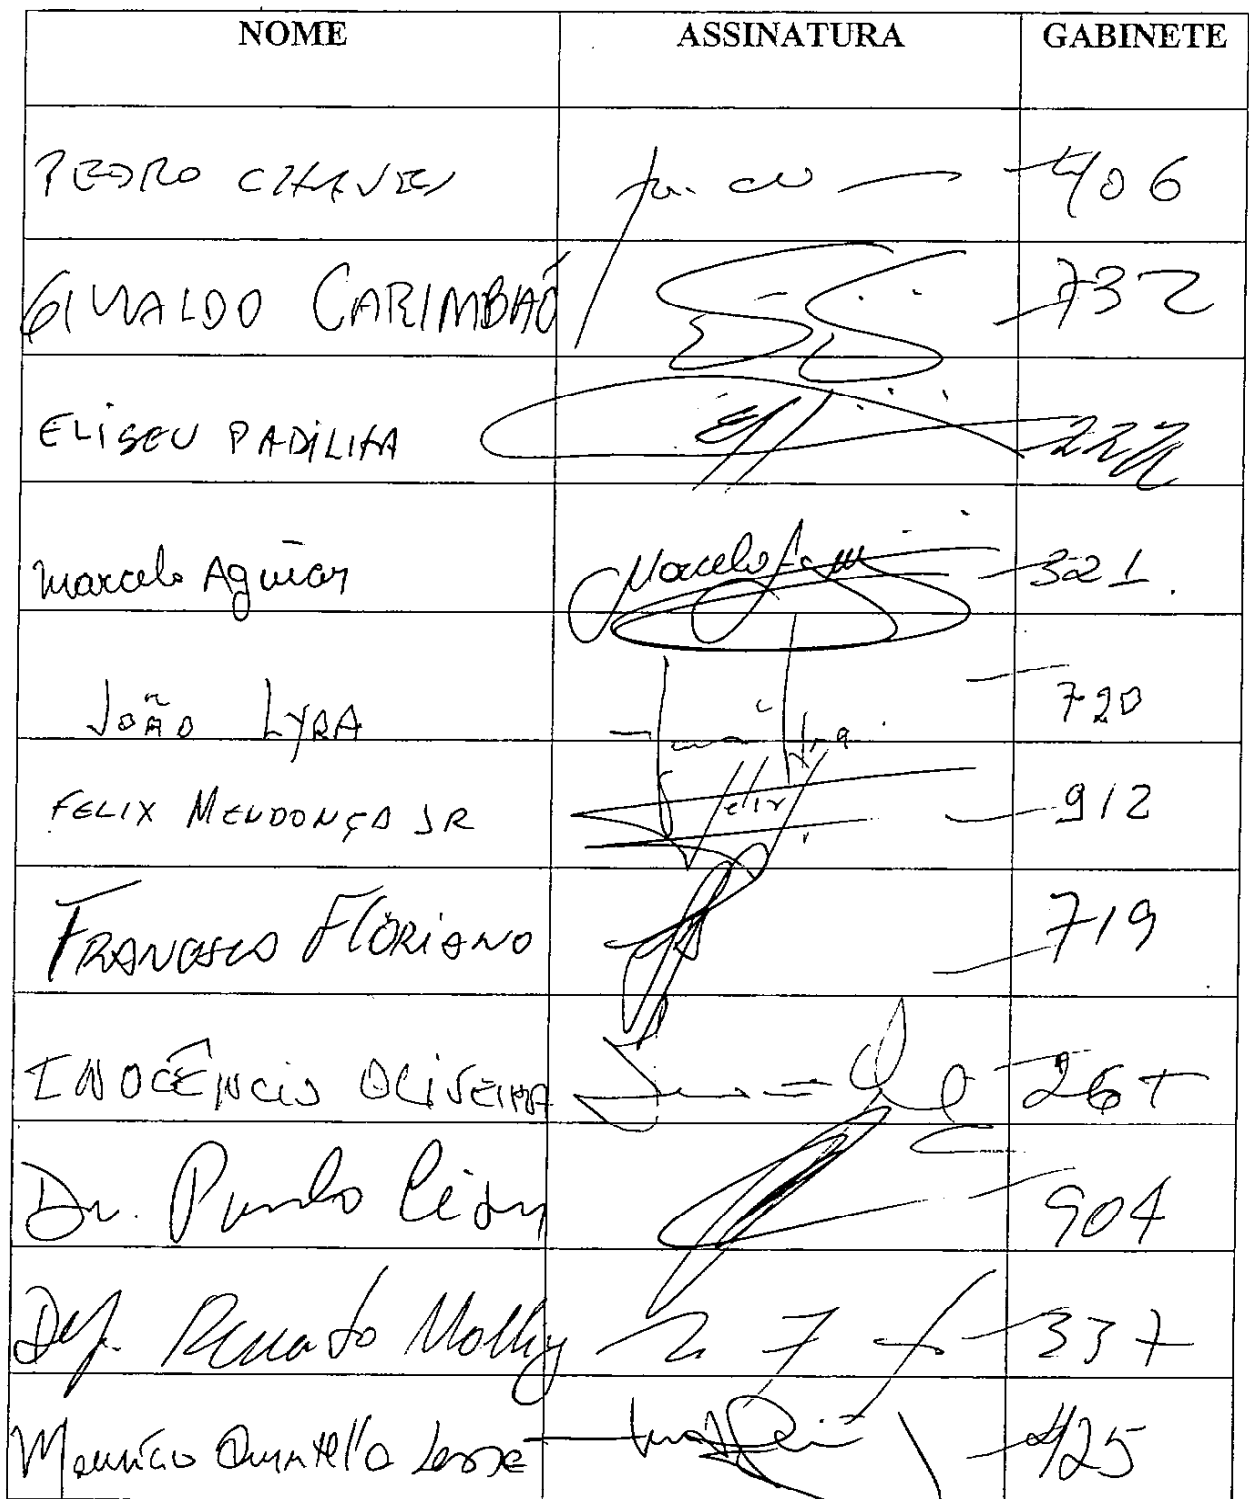 NOME ASSINATURA GABINETE
PEDRO CHAVES 406
GIVALDO CARIMBÃO 732
ELISEU PADILHA 222
Marcelo Aguiar Marcelo Aguiar 321
JOÃO LYRA 720
FELIX MENDONÇA JR Felix 912
FRANCISCO FLORIANO 719
INOCÊNCIO OLIVEIRA 267
Dr. Paulo César 904
Dep. Renato Molling 337
Maurício Quintella Lessa 425